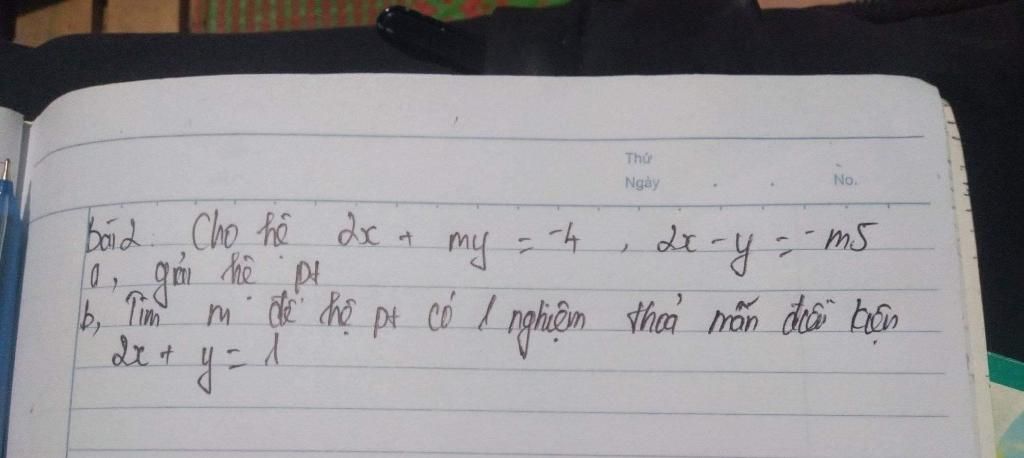 Thứ
Ngày . . No.
bài 2: Cho hệ 2x + my = -4 , 2x - y = -m5
a, giải hệ pt
b, Tìm m để hệ pt có 1 nghiệm thoả mãn điều kiện
2x + y = 1